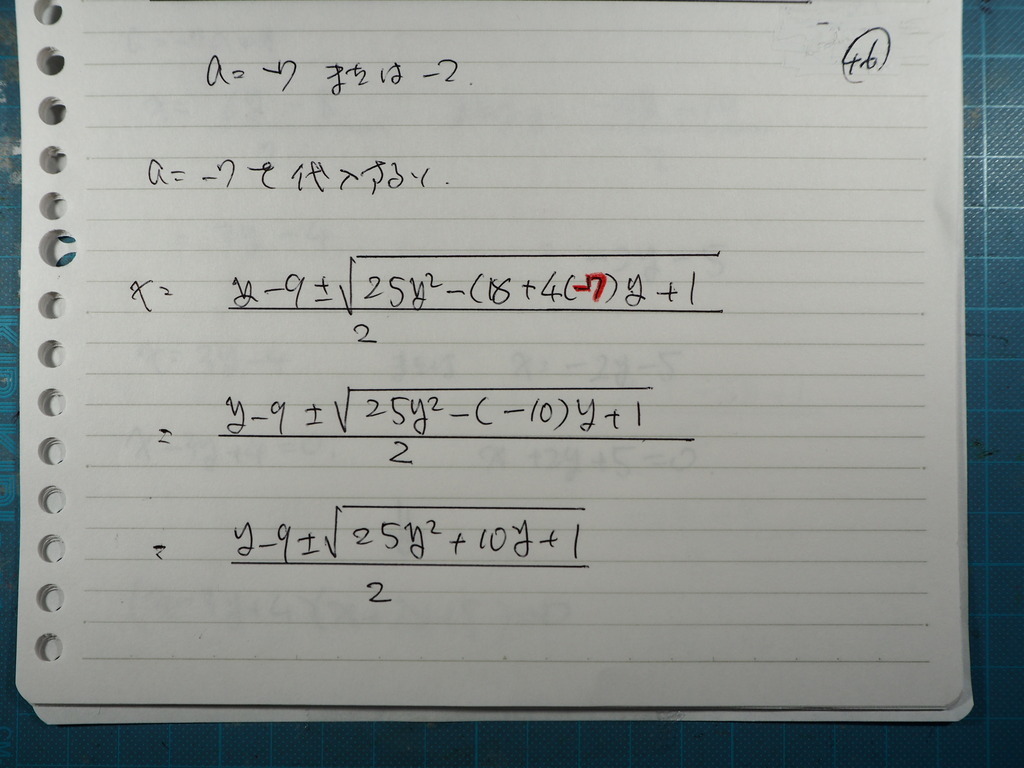 a = -7 または -2.
46
a = -7 を代入すると.
x = (y-9±√(25y²-(18+4(-7)y+1))/2
= (y-9±√(25y²-(-10)y+1))/2
= (y-9±√(25y²+10y+1))/2